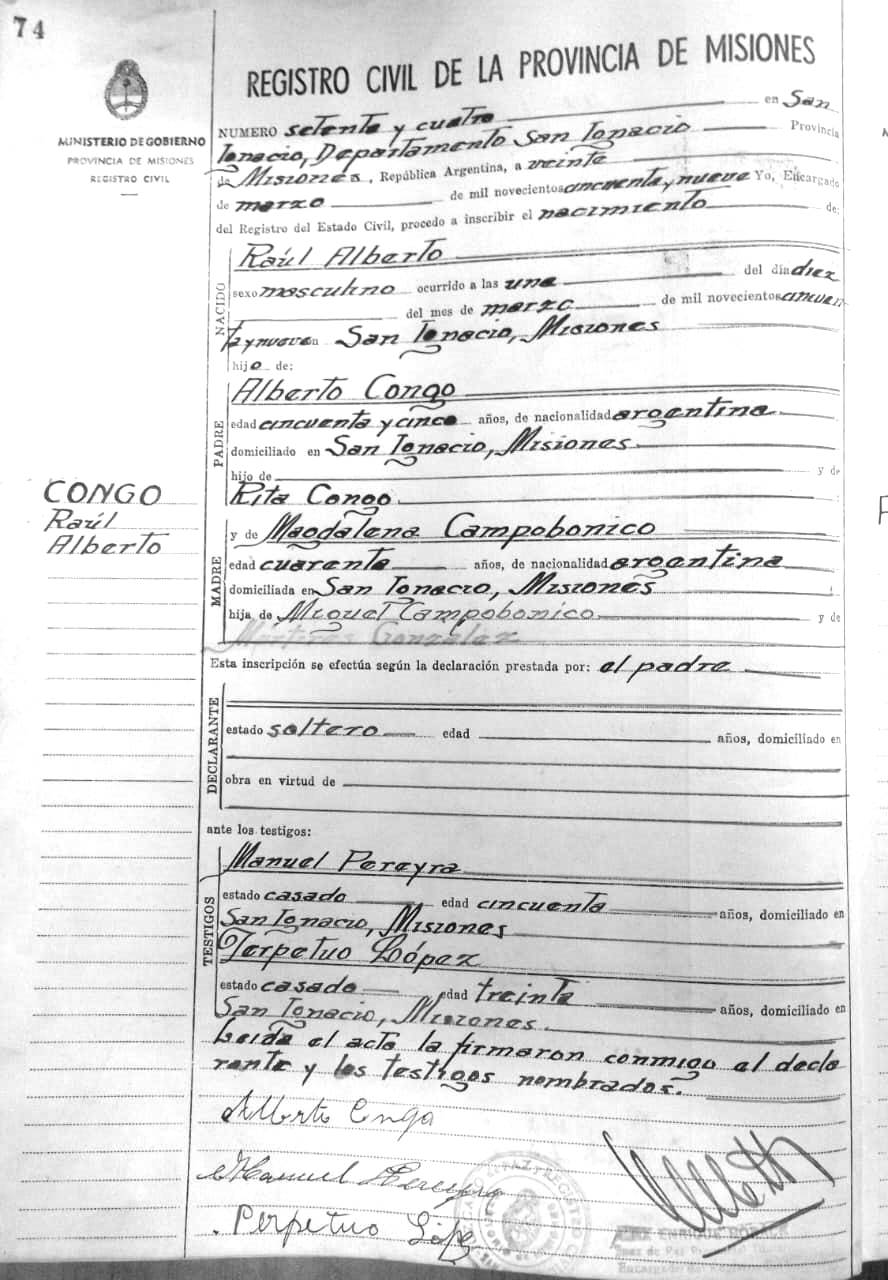 74
REGISTRO CIVIL DE LA PROVINCIA DE MISIONES
MINISTERIO DE GOBIERNO
PROVINCIA DE MISIONES
REGISTRO CIVIL
NUMERO setenta y cuatro en San
Ignacio, Departamento San Ignacio Provincia
de Misiones, República Argentina, a veinte
de marzo de mil novecientos cincuenta y nueve Yo, Encargado
del Registro del Estado Civil, procedo a inscribir el nacimiento de:
NACIDO
Raúl Alberto
sexo masculino ocurrido a las una del día diez
del mes de marzo de mil novecientos cincuen
ta y nueve en San Ignacio, Misiones
hijo de:
PADRE
Alberto Congo
edad cincuenta y cinco años, de nacionalidad argentina
domiciliado en San Ignacio, Misiones
hijo de y de
Rita Congo
CONGO
Raúl
Alberto
MADRE
y de Magdalena Campobonico
edad cuarenta años, de nacionalidad argentina
domiciliada en San Ignacio, Misiones
hija de Miguel Campobonico y de
González
Esta inscripción se efectúa según la declaración prestada por: el padre
DECLARANTE
estado soltero edad años, domiciliado en
obra en virtud de
ante los testigos:
TESTIGOS
Manuel Pereyra
estado casado edad cincuenta años, domiciliado en
San Ignacio, Misiones
Perpetuo López
estado casado edad treinta años, domiciliado en
San Ignacio, Misiones
Leída el acta la firmaron conmigo el decla
rante y los testigos nombrados.
Alberto Congo
Manuel Pereyra
Perpetuo López
ENRIQUE
Juez de Paz
Encargado de